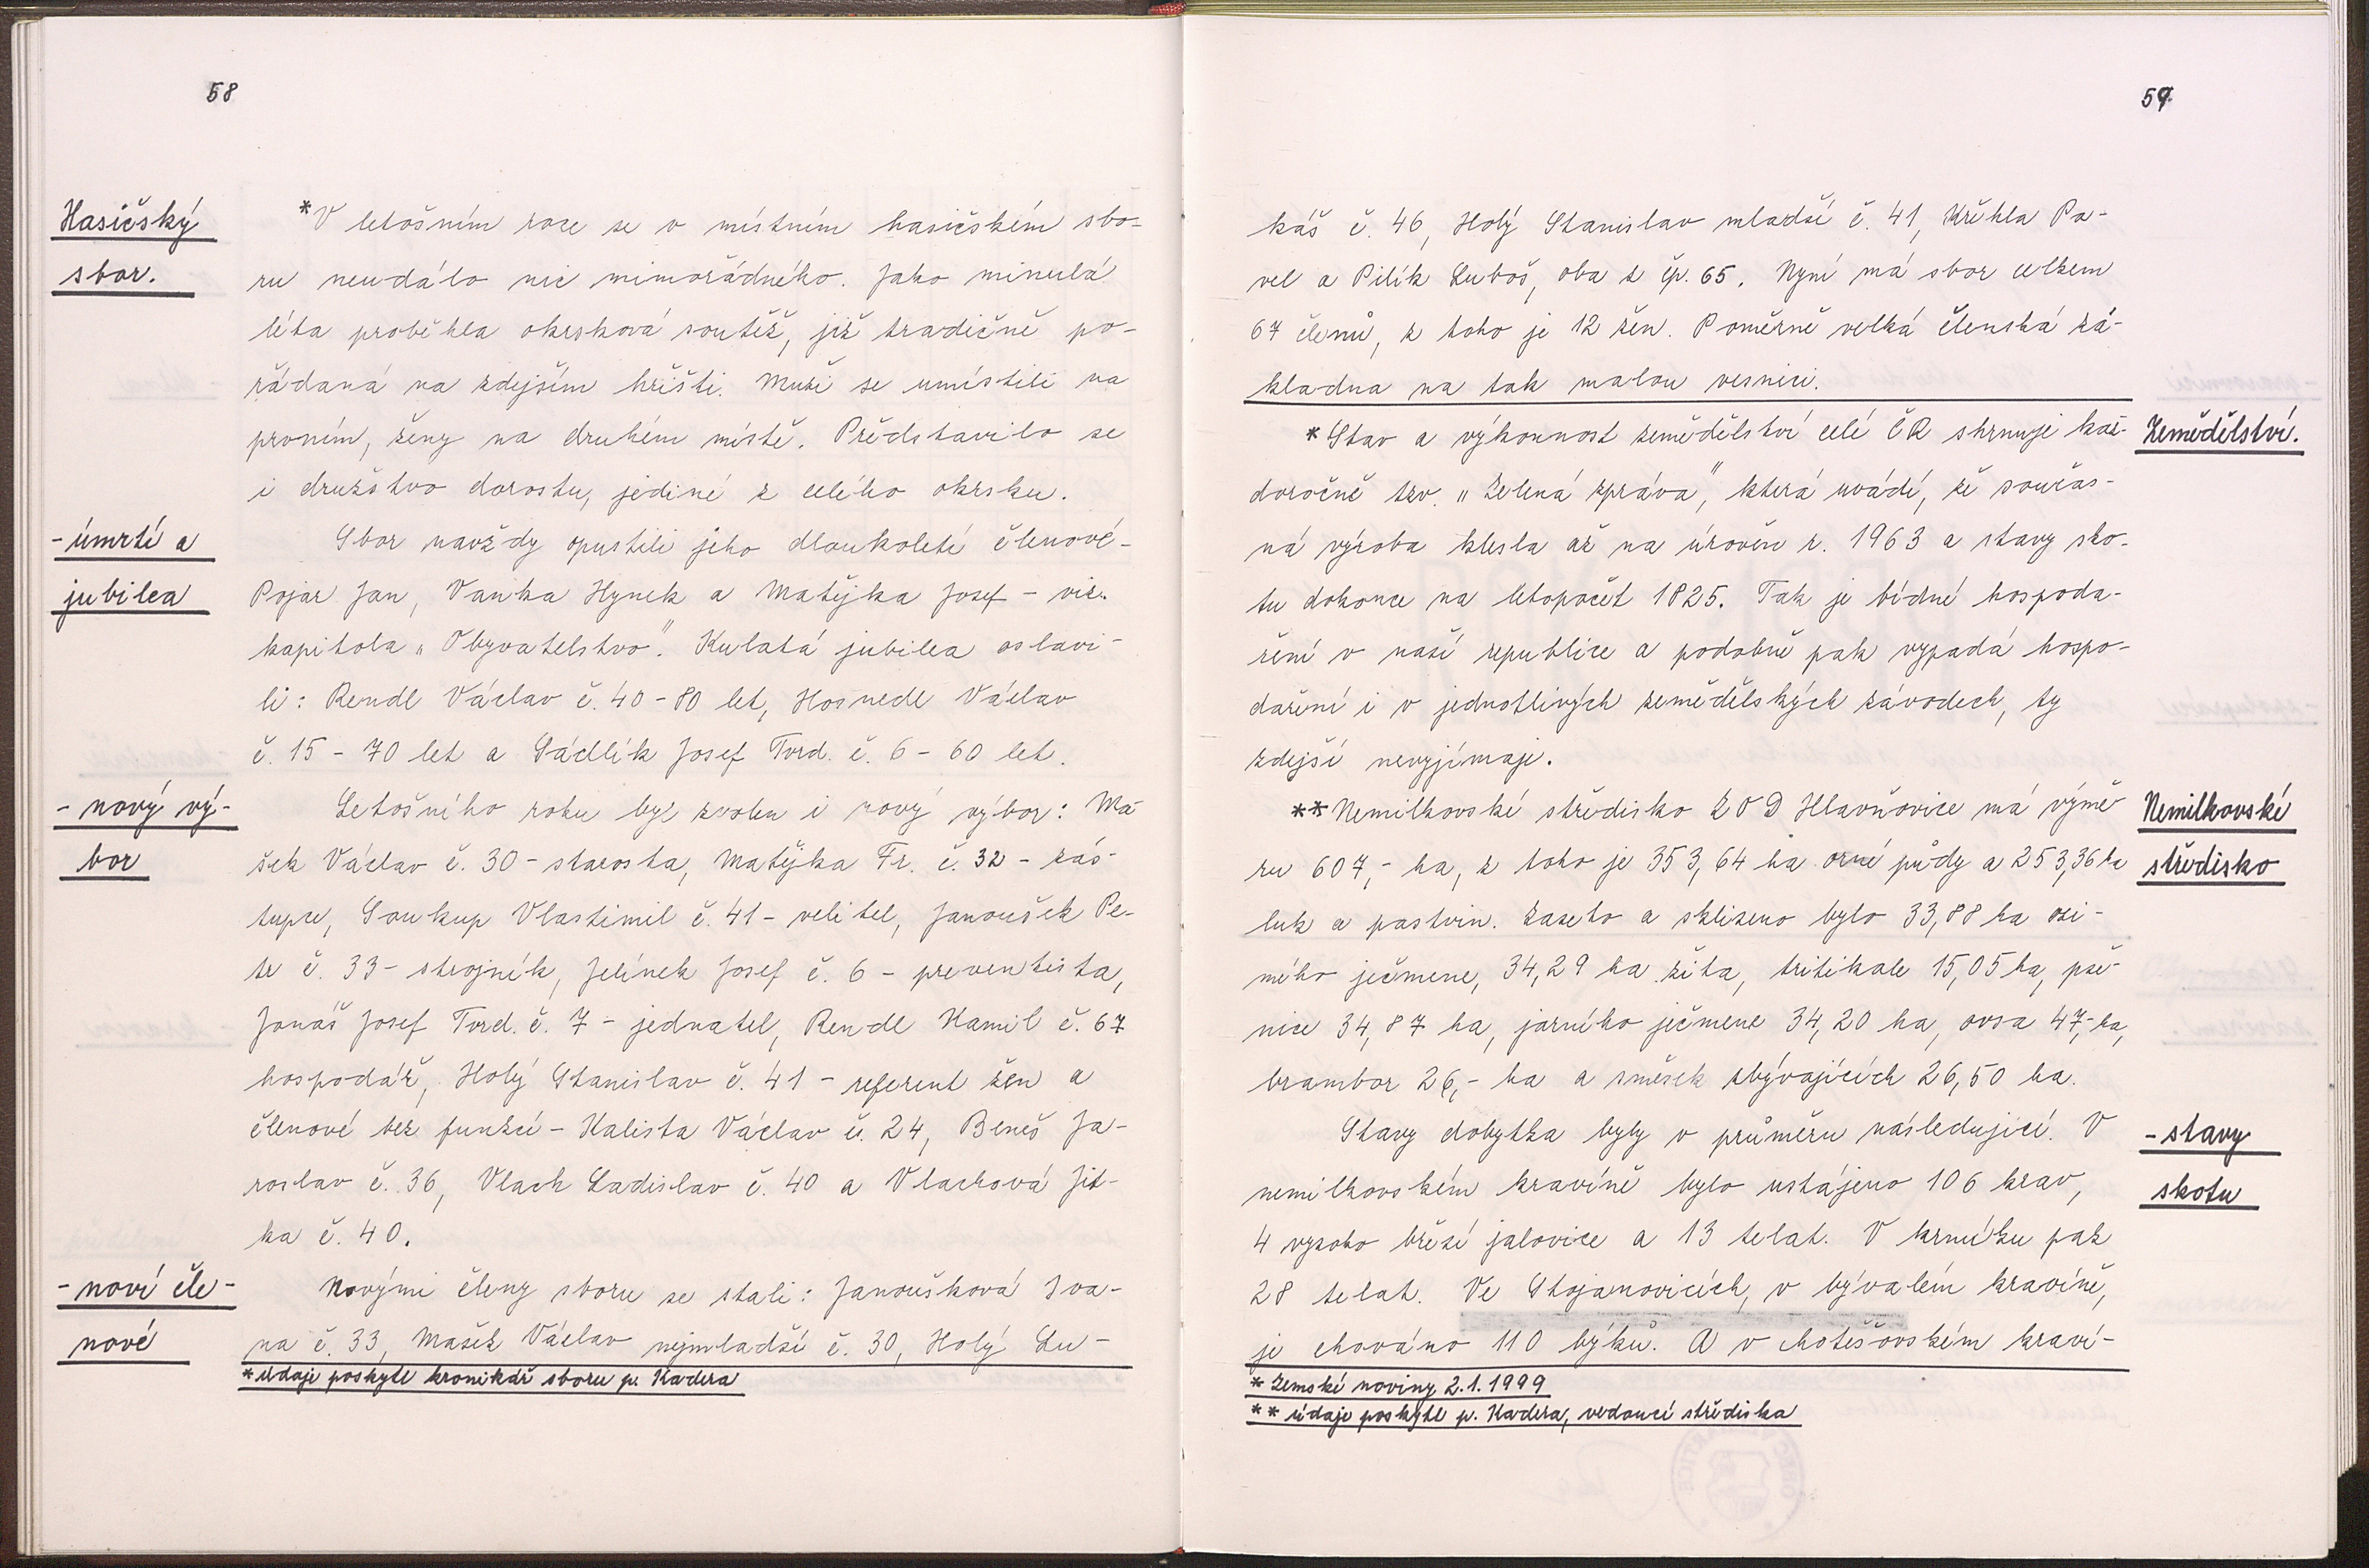 58
Hasičský
sbor.
*V letošním roce se v místním hasičském sbo-
ru neudálo nic mimořádného. Jako minulá
léta proběhla okrsková soutěž, již tradičně po-
řádaná na zdejším hřišti. Muži se umístili na
prvním, ženy na druhém místě. Představilo se
i družstvo dorostu, jediné z celého okrsku.
- úmrtí a
jubilea
Sbor navždy opustili jeho dlouholetí členové -
Pojar Jan, Vaňka Hynek a Matějka Josef - viz.
kapitola "Obyvatelstvo". Kulatá jubilea oslavi-
li: Rendl Václav č. 40 - 80 let, Hosnedl Václav
č. 15 - 70 let a Sádlík Josef Tvrd. č. 6 - 60 let.
- nový vý-
bor
Letošního roku byl zvolen i nový výbor: Ma-
šek Václav č. 30 - starosta, Matějka Fr. č. 32 - zás-
tupce, Soukup Vlastimil č. 41 - velitel, Janoušek Pe-
tr č. 33 - strojník, Jelínek Josef č. 6 - preventista,
Jonáš Josef Tvrd. č. 7 - jednatel, Rendl Kamil č. 67
hospodář, Holý Stanislav č. 41 - referent žen a
členové bez funkcí - Kalista Václav č. 24, Beneš Ja-
roslav č. 36, Vlach Ladislav č. 40 a Vlachová Jit-
ka č. 40.
- noví čle-
nové
Novými členy sboru se stali: Janoušková Iva-
na č. 33, Mašek Václav nejmladší č. 30, Holý Lu-
* údaje poskytl kronikář sboru p. Kadera
59
káš č. 46, Holý Stanislav mladší č. 41, Křehla Pa-
vel a Pilík Luboš, oba z čp. 65. Nyní má sbor celkem
67 členů, z toho je 12 žen. Poměrně velká členská zá-
kladna na tak malou vesnici.
Zemědělství.
* Stav a výkonnost zemědělství celé ČR shrnuje kaž-
doročně tzv. "Zelená zpráva", která uvádí, že součas-
ná výroba klesla až na úroveň r. 1963 a stavy sko-
tu dokonce na letopočet 1825. Tak je bídné hospoda-
ření v naší republice a podobně pak vypadá hospo-
daření i v jednotlivých zemědělských závodech, ty
zdejší nevyjímaje.
Nemilkovské
středisko
** Nemilkovské středisko ZOD Hlavňovice má výmě
ru 607,- ha, z toho je 353,64 ha orné půdy a 253,36 ha
luk a pastvin. Zaseto a sklizeno bylo 33,88 ha ozi-
mého ječmene, 34,29 ha žita, tritikale 15,05 ha, pše-
nice 34,87 ha, jarního ječmene 34,20 ha, ovsa 47,- ha,
brambor 26,- ha a směsek zbývajících 26,50 ha.
- stavy
skotu
Stavy dobytka byly v průměru následující. V
nemilkovském kravíně bylo ustájeno 106 krav,
4 vysoko březí jalovice a 13 telat. V krmíku pak
28 telat. Ve Stojanovicích, v bývalém kravíně,
je chováno 110 býků. A v chotěšovském kraví-
* Zemské noviny 2.1.1999
** údaje poskytl p. Kadera, vedoucí střediska